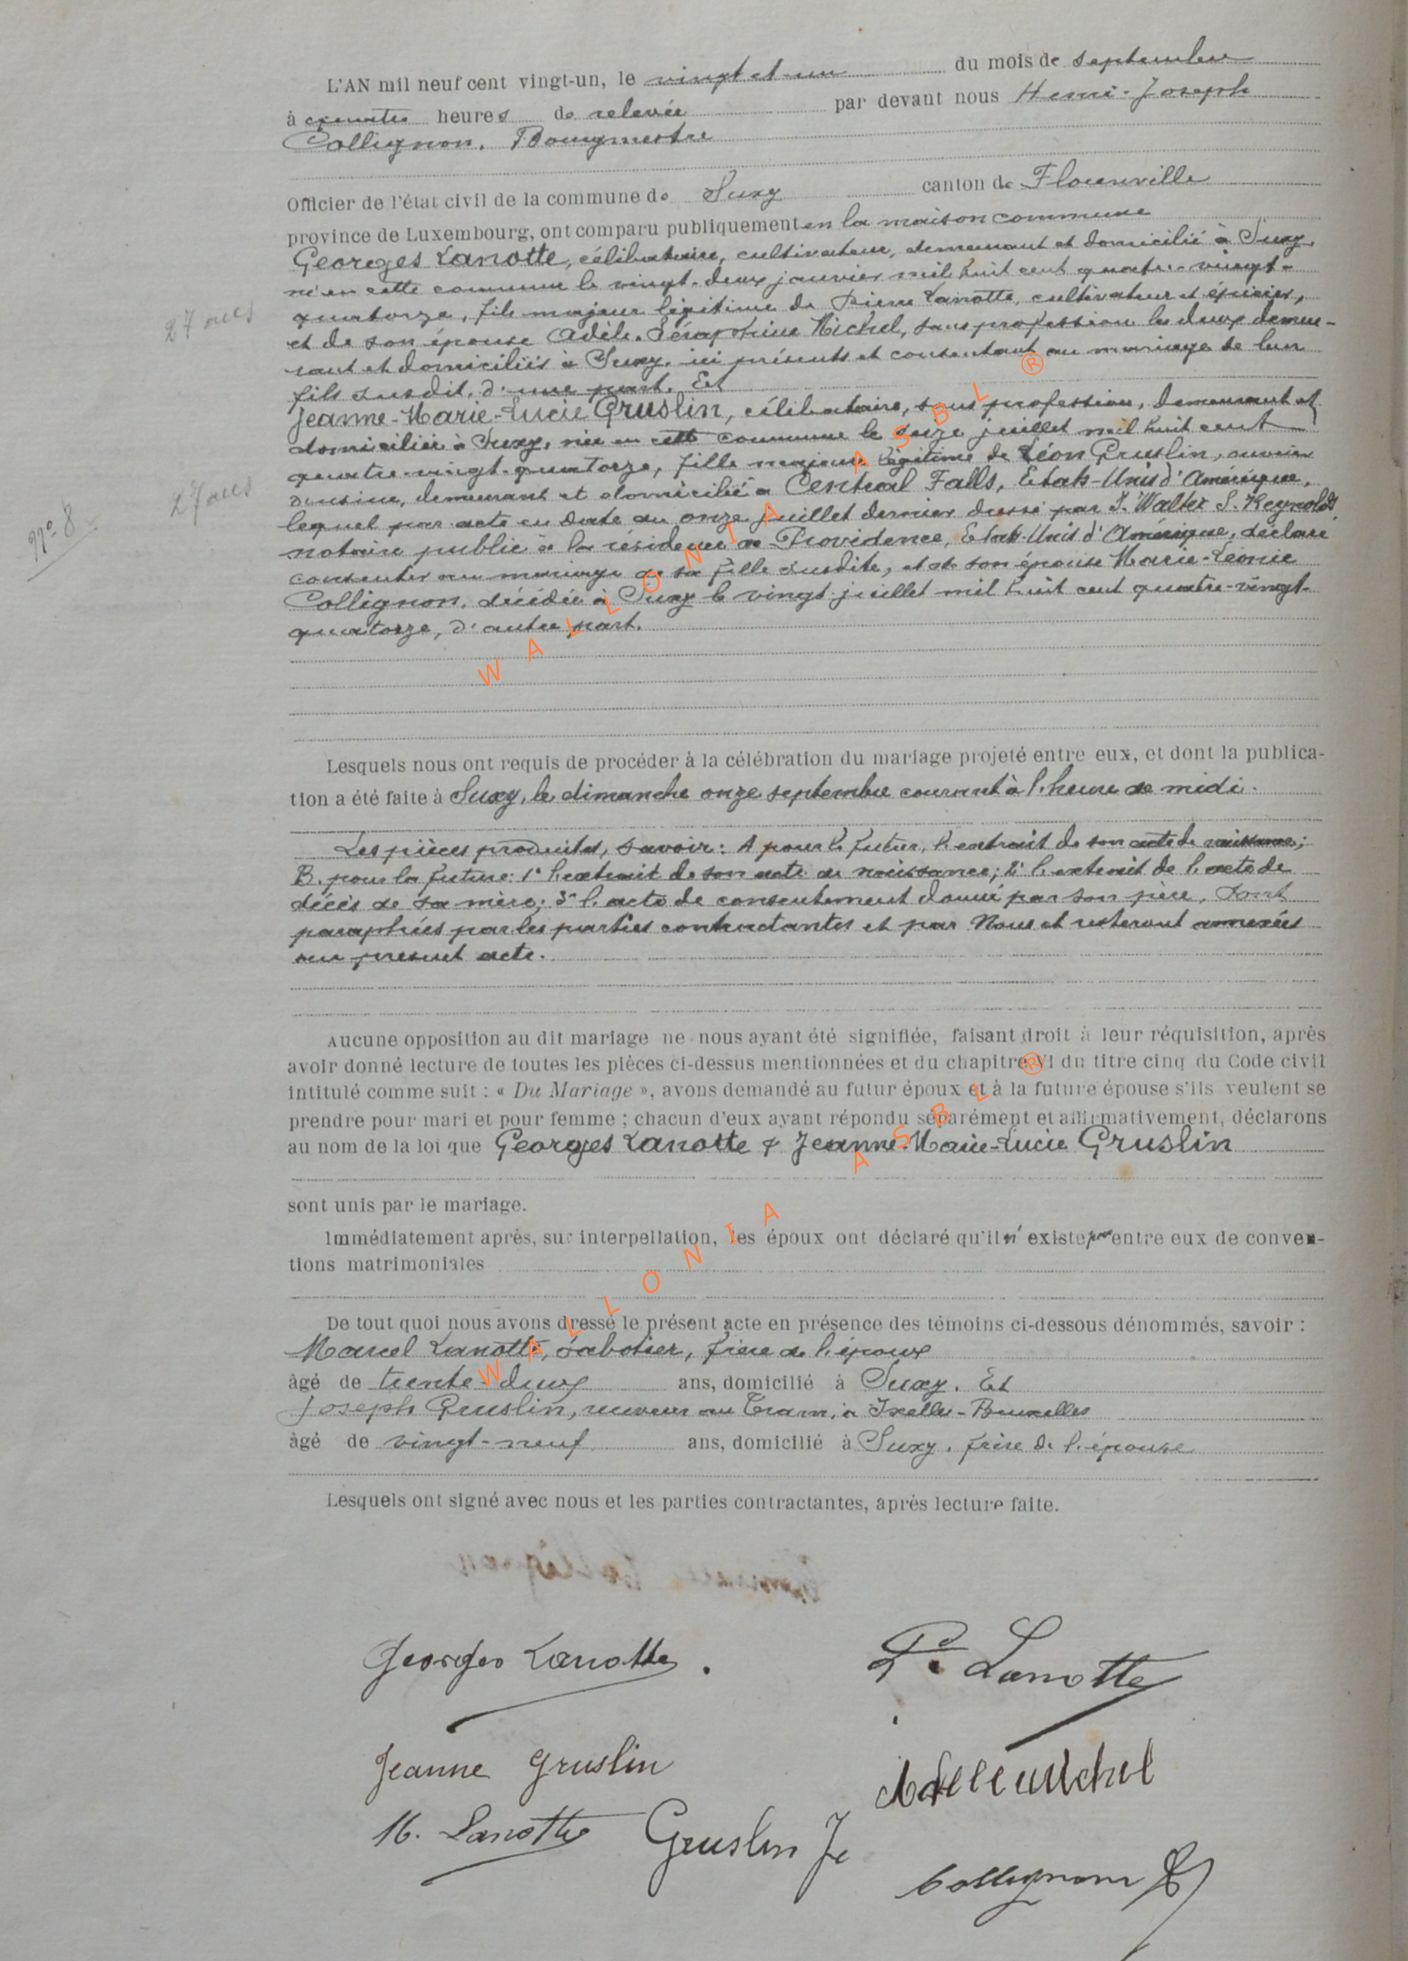 L'AN mil neuf cent vingt-un, le vingt et un du mois de septembre
à quatre heures de relevée par devant nous Henri-Joseph
Collignon, Bourgmestre
Officier de l'état civil de la commune de Suxy canton de Florenville
province de Luxembourg, ont comparu publiquement en la maison commune
Georges Lanotte, célibataire, cultivateur, demeurant et domicilié à Suxy,
né en cette commune le vingt-deux janvier mil huit cent quatre-vingt-
27 ans
quatorze, fils majeur légitime de Pierre Lanotte, cultivateur et épicier,
et de son épouse Adèle-Séraphine Michel, sans profession les deux demeu-
rant et domiciliés à Suxy, ici présents et consentant au mariage de leur
fils susdit, d'une part. Et
Jeanne-Marie-Lucie Gruslin, célibataire, sans profession, demeurant et
domiciliée à Suxy, née en cette commune le onze juillet mil huit cent
quatre-vingt-quatorze, fille majeure légitime de Léon Gruslin, ouvrier
27 ans
d'usine, demeurant et domicilié à Central Falls, Etats-Unis d'Amérique,
N° 8
lequel par acte en date du onze juillet dernier dressé par J. Walter S. Reynolds
notaire public à la résidence de Providence, Etats-Unis d'Amérique, déclare
consentir au mariage de sa fille susdite, et de son épouse Marie-Léonie
Collignon, décédée à Suxy le vingt juillet mil huit cent quatre-vingt-
quatorze, d'autre part.
WALLONIA ASBL ®
Lesquels nous ont requis de procéder à la célébration du mariage projeté entre eux, et dont la publica-
tion a été faite à Suxy, le dimanche onze septembre courant à l'heure de midi.
Les pièces produites, savoir: A pour le futur, l'extrait de son acte de naissance;
B. pour la future: 1° l'extrait de son acte de naissance; 2° l'extrait de l'acte de
décès de sa mère; 3° l'acte de consentement donné par son père, dont
paraphées par les parties contractantes et par Nous et resteront annexées
au présent acte.
Aucune opposition au dit mariage ne nous ayant été signifiée, faisant droit à leur réquisition, après
avoir donné lecture de toutes les pièces ci-dessus mentionnées et du chapitre VI du titre cinq du Code civil
intitulé comme suit : « Du Mariage », avons demandé au futur époux et à la future épouse s'ils veulent se
prendre pour mari et pour femme ; chacun d'eux ayant répondu séparément et affirmativement, déclarons
au nom de la loi que Georges Lanotte & Jeanne-Marie-Lucie Gruslin
sont unis par le mariage.
Immédiatement après, sur interpellation, les époux ont déclaré qu'il n'existe pas entre eux de conven-
tions matrimoniales
WALLONIA ASBL ®
De tout quoi nous avons dressé le présent acte en présence des témoins ci-dessous dénommés, savoir :
Marcel Lanotte, sabotier, frère de l'époux
âgé de trente-deux ans, domicilié à Suxy. Et
Joseph Gruslin, receveur au Tram, à Ixelles-Bruxelles
âgé de vingt-neuf ans, domicilié à Suxy, frère de l'épouse
Lesquels ont signé avec nous et les parties contractantes, après lecture faite.
Georges Lanotte. P. Lanotte
Jeanne Gruslin Adèle Michel
M. Lanotte Gruslin Je
Collignon